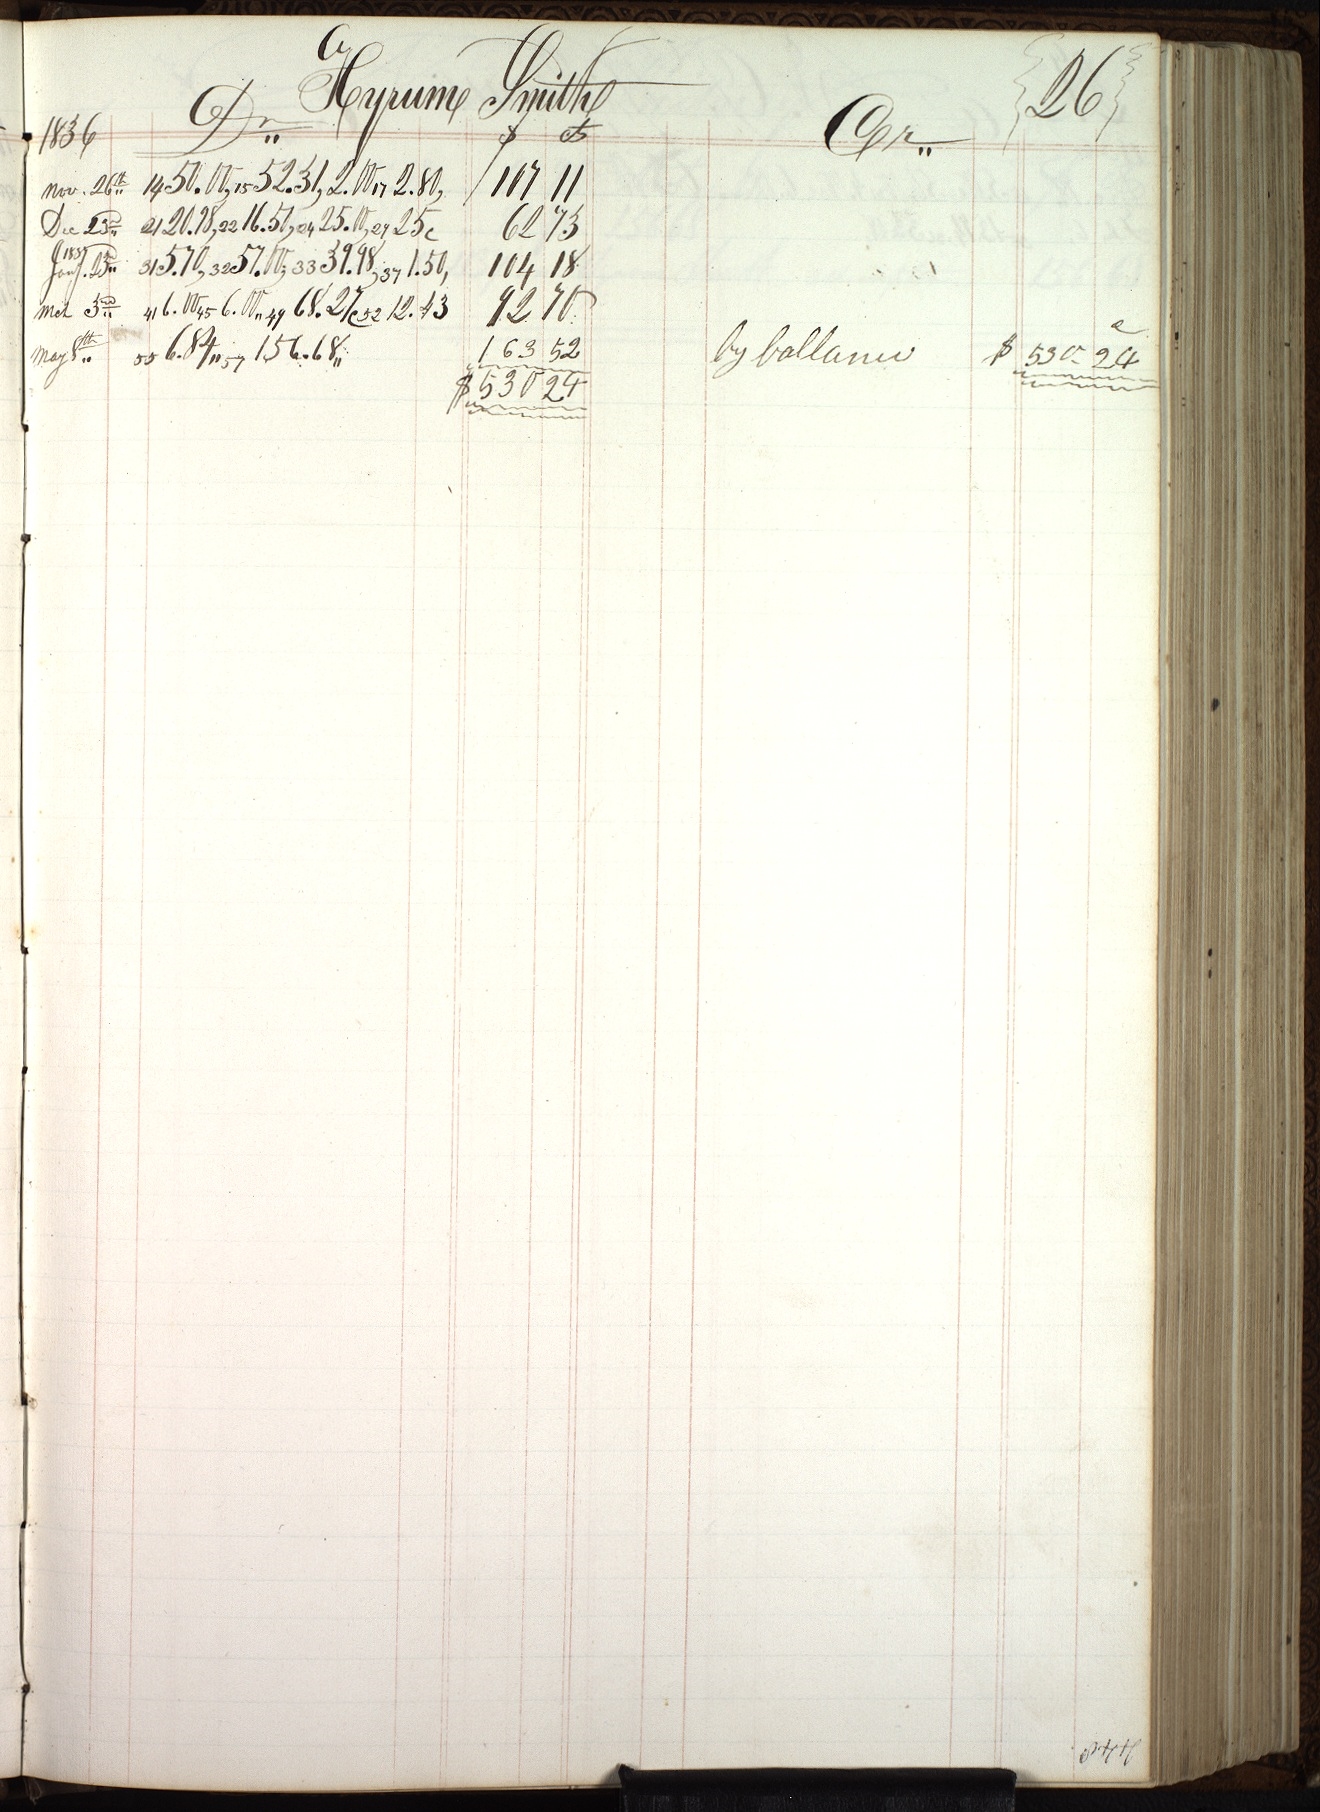 Hyrum Smith 26
Dr Cr
1836 $ cts
Nov. 26th 14 50.00, 15 52.31, 2.00 17 2.80, 107 11
Dec 23rd 21 20.98, 22 16.50, 24 25.00, 27 25c 62 73
1837
Jany. 23rd 31 5.70, 32 57.00, 33 39.98, 37 1.50, 104 18
Mch 3rd 41 6.00 45 6.00 49 68.27 52 12.43 92 70
May 8th 55 6.84 57 156.68 163 52 by ballance $ 530 24
$530 24